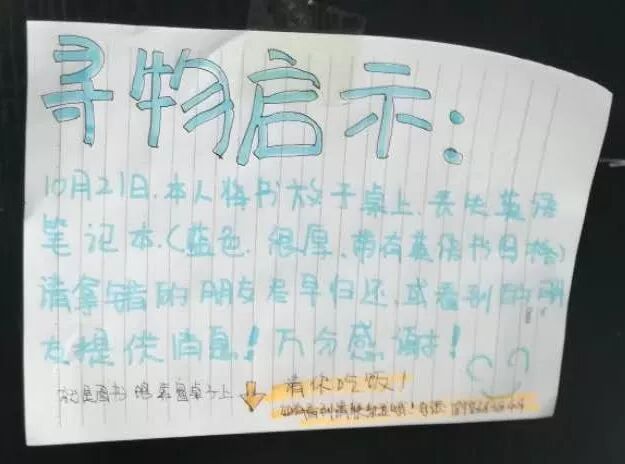 寻物启示:
10月21日.本人将书放于桌上.丢失英语
笔记本.(蓝色.很厚.带有英语书目格)
请拿错的朋友尽早归还.或看到的朋
友提供消息!万分感谢!
桌子上
请你吃饭!